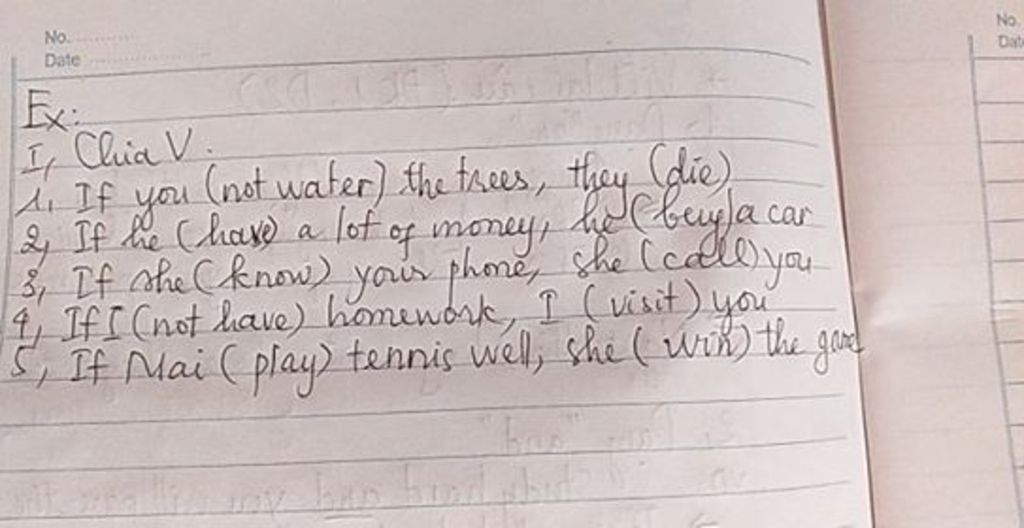 No.
Date
Ex:
I, Chia V.
1, If you (not water) the trees, they (die)
2, If he (have) a lot of money, he (buy) a car
3, If she (know) your phone, she (call) you
4, If I (not have) homework, I (visit) you
5, If Mai (play) tennis well, she (win) the game
No.
Date